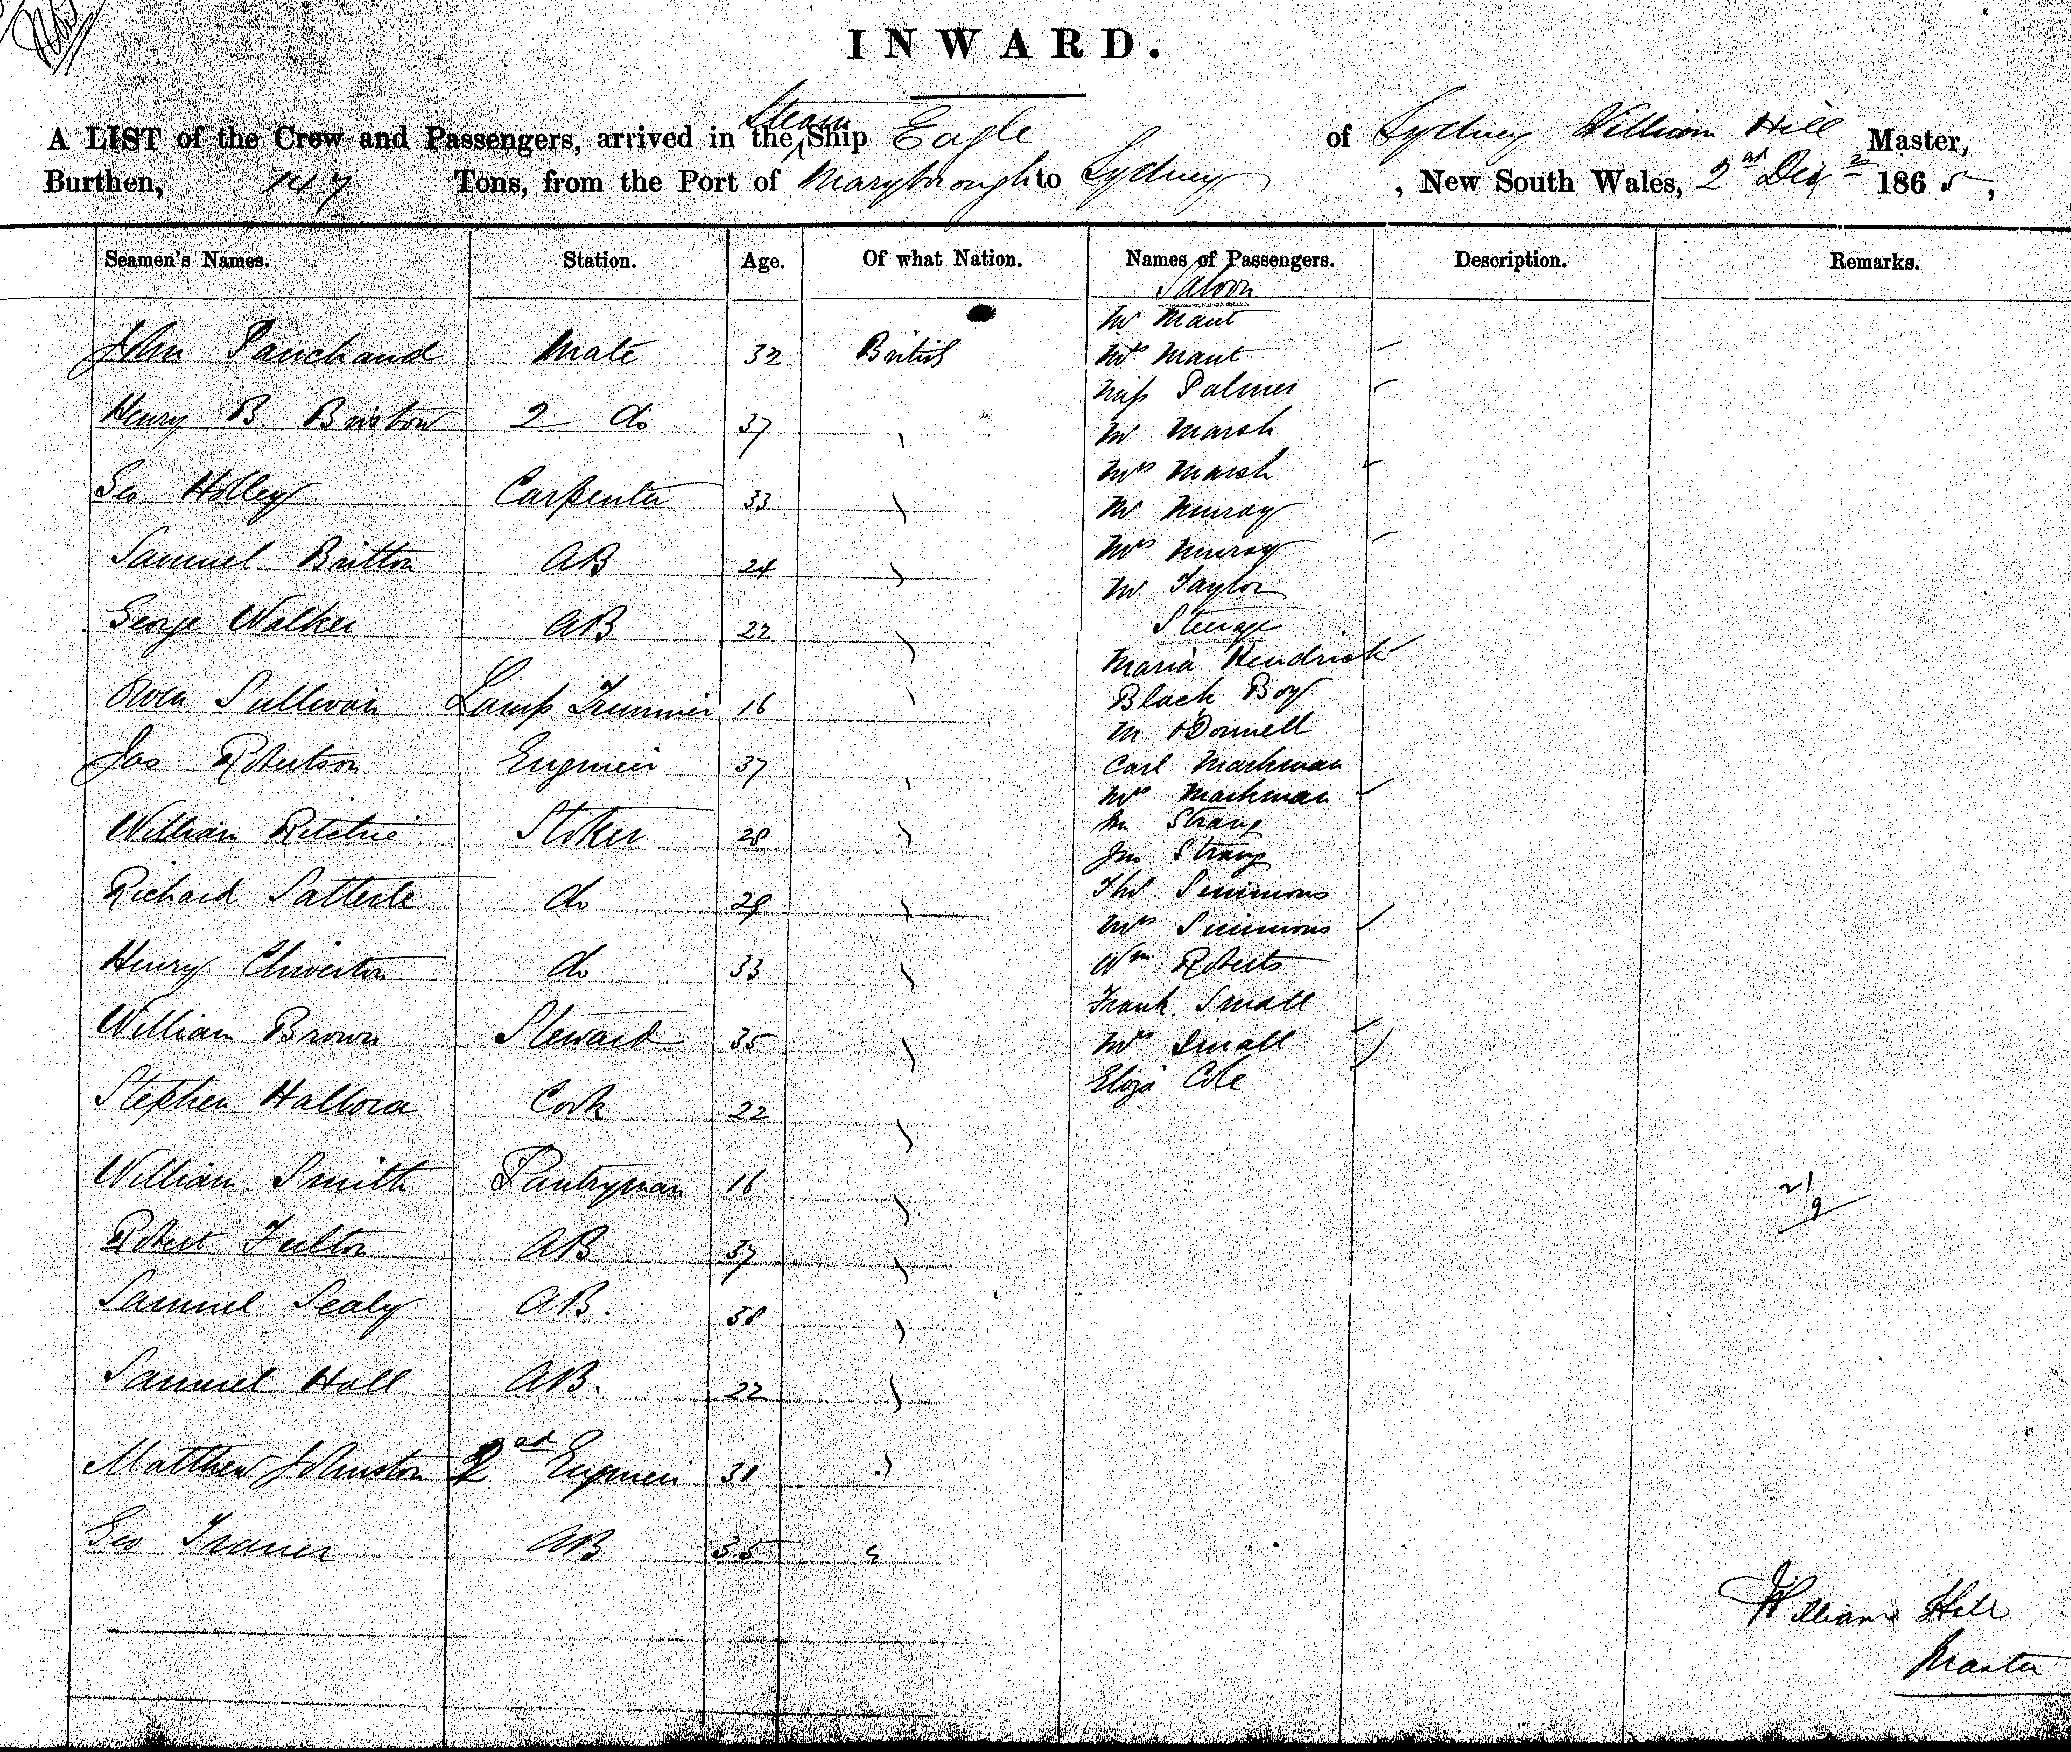 INWARD.
A LIST of the Crew and Passengers, arrived in the Steam Ship Eagle of Sydney William Hill Master,
Burthen, 147 Tons, from the Port of Maryborough to Sydney, New South Wales, 2nd Dec 1865,
Seamen's Names. Station. Age. Of what Nation. Names of Passengers. Description. Remarks.
John Panchaud Mate 32 British
Henry B. Bristow 2 do 37
Geo Holley Carpenter 33
Samuel Britton AB 24
George Walker AB 22
Sullivan Lamp Trimmer 16
Jas Robertson Engineer 37
William Ritchie Stoker 28
Richard Satterle do 29
Henry Chiverton do 33
William Brown Steward 35
Stephen Hallora Cook 22
William Smith Pantryman 16
Robert Fulton AB 37
Samuel Sealy AB. 38
Samuel Hall AB. 22
Matthew Johnston 2nd Engineer 31
Geo AB 35
Saloon
Mr Mant
Mrs Mant
Miss Palmer
Mr Marsh
Mrs Marsh
Mr Murray
Mrs Murray
Mr Taylor
Steerage
Maria Kendrick
Black Boy
M O'Donnell
Carl Markman
Mrs Markman
Strang
Jno Strang
Thos Simmons
Mrs Simmons
Wm Roberts
Frank Small
Mrs Small
Eliza Cole
21
9
William Hill
Master